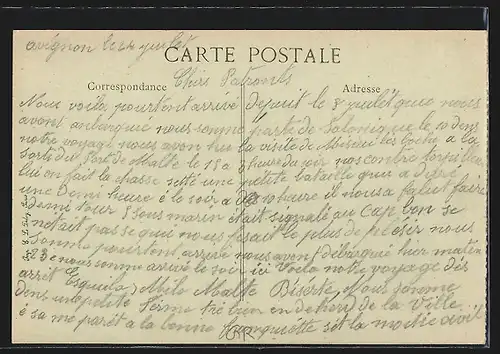 avignon le 24 juillet
CARTE POSTALE
Correspondance
Adresse
Chers Parents
Nous voila pourtent arrivé depuit le 8 juillet que nous
avont anbarqué nous somme parti de Salonique le 10 dens
notre voyage nous avon hu la visite de à la
sorti du Port de Malte le 18 a 3 heure du soir nos contre
lui on fait la chasse sette une petite bataille qui a diré
une demi heure é le soir a heure il nous a falut faire
demi tour 5 sous marin était signalé au Cap bon se
notait pas se qui nous fesait le plus de plésir nous
somme pourtent arrivé nous aven débarqué hier matin
23 e nous somme arrivé le soir ici voila notre voyage dès
arrêt Milo Malte Biserte Nous somme
dens une petite ferme tré bien en dehord de la Ville
é sa me parêt a la bonne franquiétte set la moitié civil